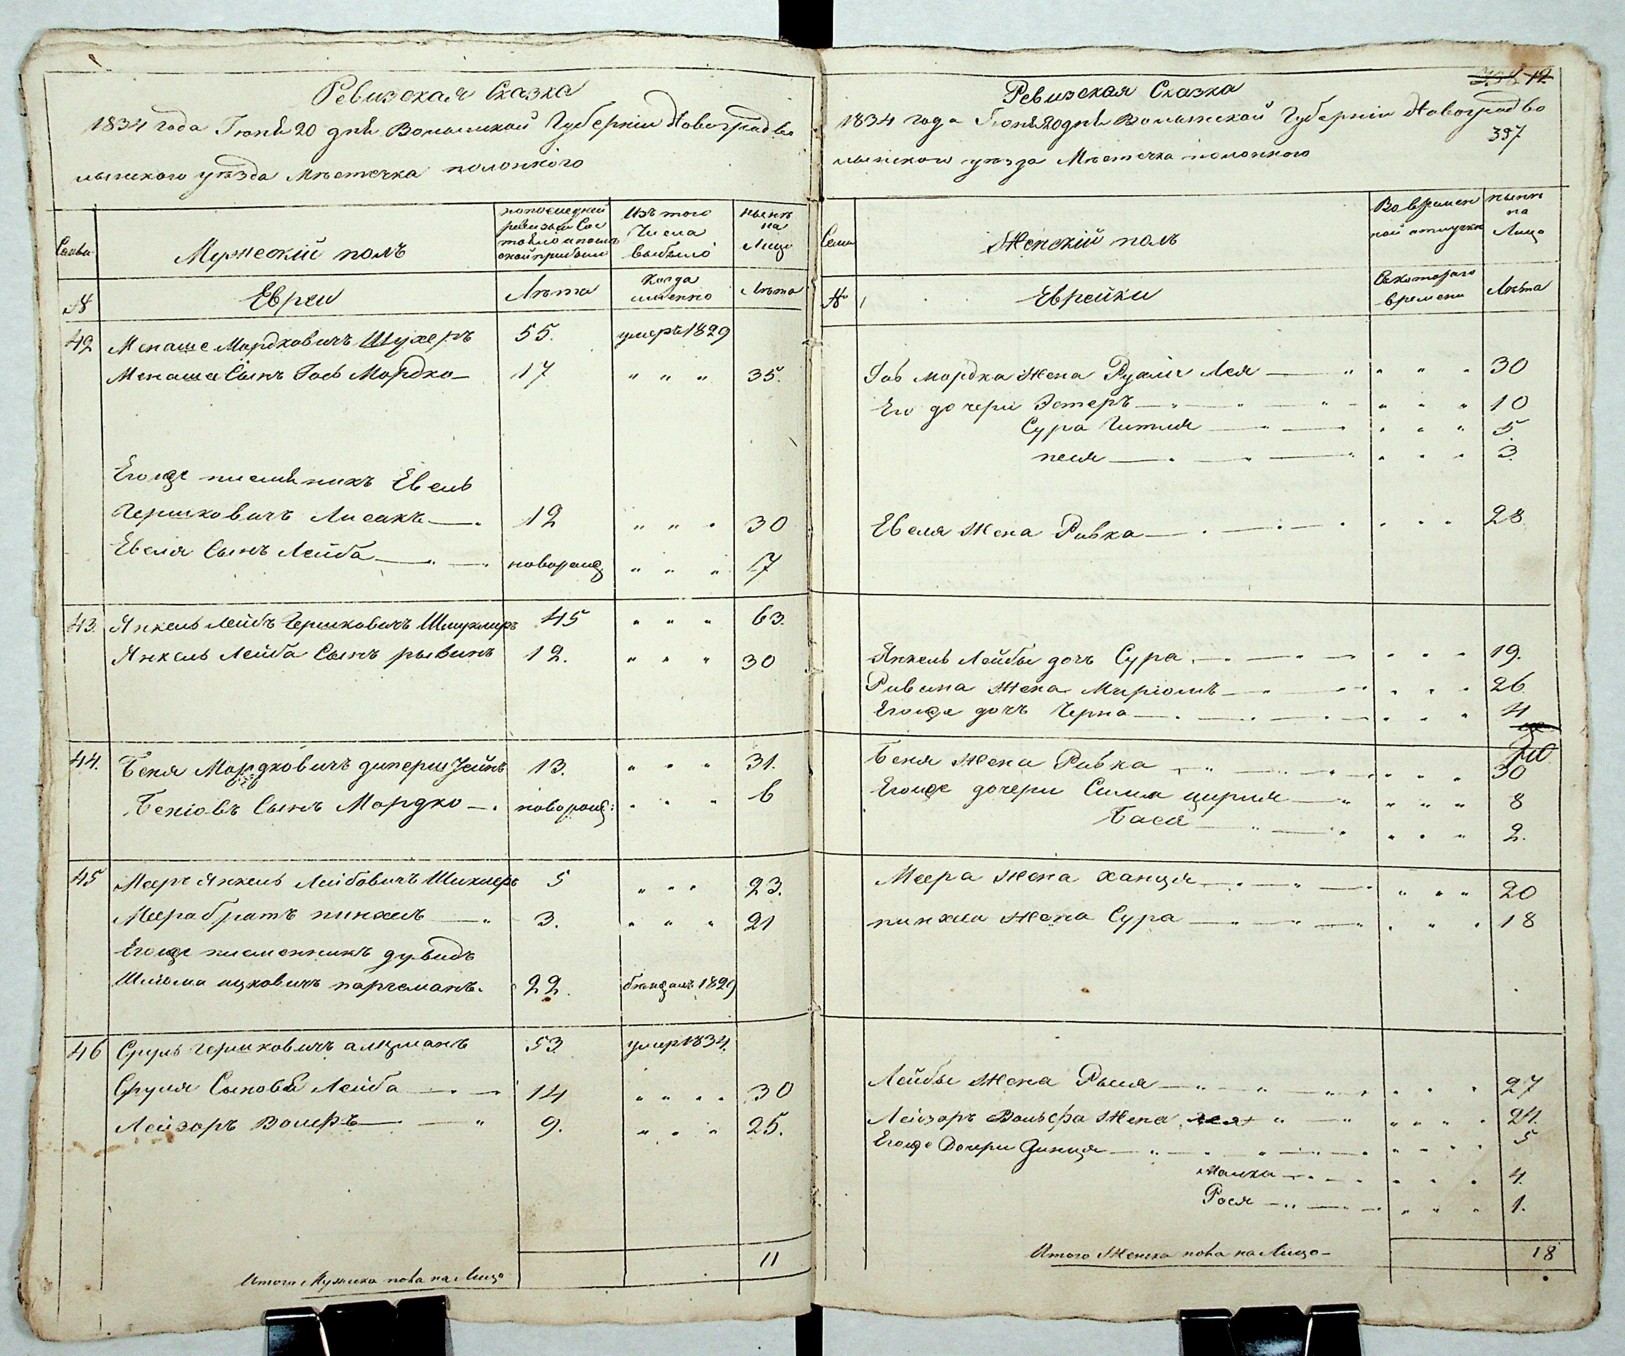 Ревизская Сказка
1834 года Іюня 20 дня Волынской Губерніи Новоградво
лынского уѣзда Мѣстечка полонного
Семьи
Мужескій полъ
по последней ревизіи Сос тояло и после оной прибыло
Изъ того Числа выбыло
нынѣ на Лицо
№
Евреи
Лѣта
Когда именно
Лѣта
42 Менаше Мордковичъ Шухеръ 55. умеръ 1829
Менаша Сынъ Гось Мордко 17 " " " 35.
Егожъ племѣникъ Евель
Гершковичъ Лисакъ 12 " " " 30
Евеля Сынъ Лейба новорожд " " " 17
43. Янкель Лейбъ Гершковичъ 45 " " " 63.
Янкель Лейба Сынъ рывинъ 12. " " " 30
44. Беня Мордковичъ 13. " " " 31.
Беніовъ Сынъ Мордко новорожд: " " " 6
45 Мееръ Янкель Лейбовичъ Шихлеръ 5 " " " 23.
Меера братъ пинхель 3. " " " 21
Егожъ племенникъ дувидъ
Шлiома ицковичъ 22. бѣжалъ 1829
46 Сруль Гершковичъ 53. умер 1834.
Сруля Сыновья Лейба 14 " " " " 30
Лейзоръ Волфъ 9. " " " 25.
Итого Мужска пола на Лицо 11
12.
Ревизская Сказка
1834 года Іюня 20 дня Волынской Губерніи Новоградво
397
лынского уѣзда Мѣстечка полонного
Семьи
Женскій полъ
Во времен ной отлучке
нынѣ на Лицо
№
Еврейки
Съ котораго времени
Лѣта
Гось мордка Жена Рухля Лея " " " " 30
Его дочери Эстеръ " " " 10
Сура Гитля " " " 5.
песя " " " 3
Евеля Жена Ривка " " " 28
Янкель Лейбы дочь Сура " " " 19.
Ривина Жена Миріомъ " " " 26
Егожъ дочь Черна " " " 4
Беня Жена Ривка " " " 30
Егожъ дочери Симя цирля " " " 8
Бася " " " 2.
Меера Жена ханця " " " 20
пинхеля Жена Сура " " " 18
Лейбы Жена Рыся " " " 27
Лейзоръ Вольфа Жена лея " " " " 24.
Егожъ Дочери Динця " " " " 5
Малка " " " 4.
Рося " " " 1.
Итого Женска пола на Лицо 18